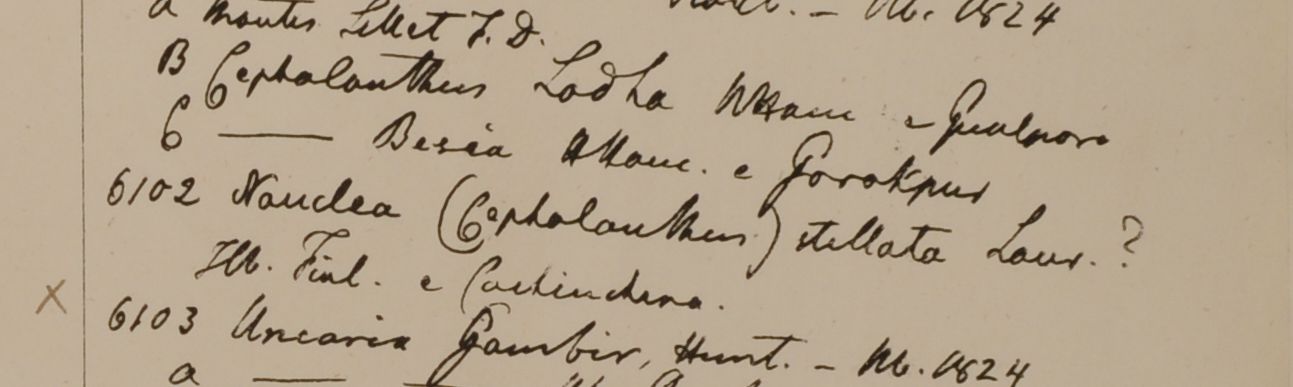 a montes Sillet F. D. - 1824
B Cephalanthus Lodha HHam e Gualpara
C — Besea HHam. e Gorokpur
6102 Nauclea (Cephalanthus) stellata Lour. ?
Hb. Finl. e Cochinchina.
X
6103 Uncaria Gambir, Hunt. - 1824
a —